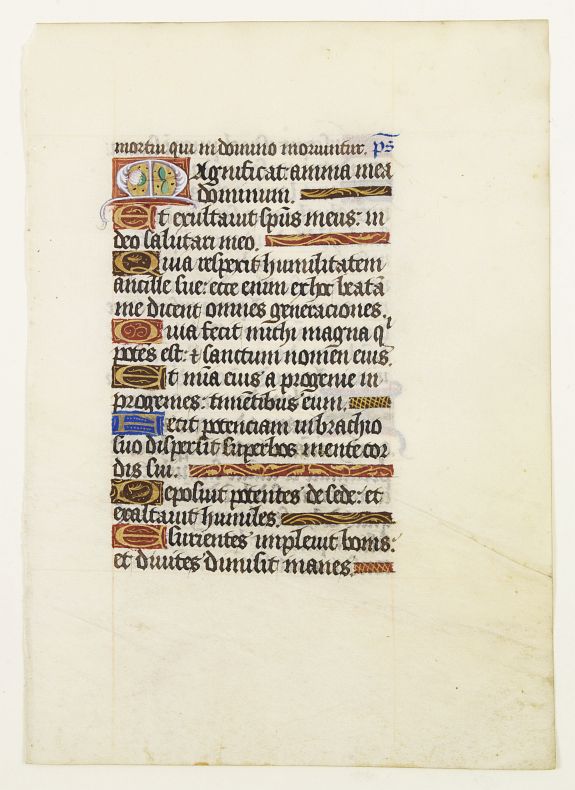 mortui qui in domino moriuntur. ps̄
Magnificat anima mea
dominum.
Et exultauit sp̄us meus: in
deo salutari meo.
Quia respexit humilitatem
ancille sue: ecce enim ex hoc beata
me dicent omnes generaciones.
Quia fecit michi magna qͥ
potēs est: ⁊ sanctum nomen eius.
Et mīa eius a progenie in
progenies: timētibus eum.
Fecit potenciam in brachio
suo dispersit superbos mente cor
dis sui.
Deposuit potentes de sede: et
exaltauit humiles.
Esurientes impleuit bonis:
et diuites dimisit inanes.